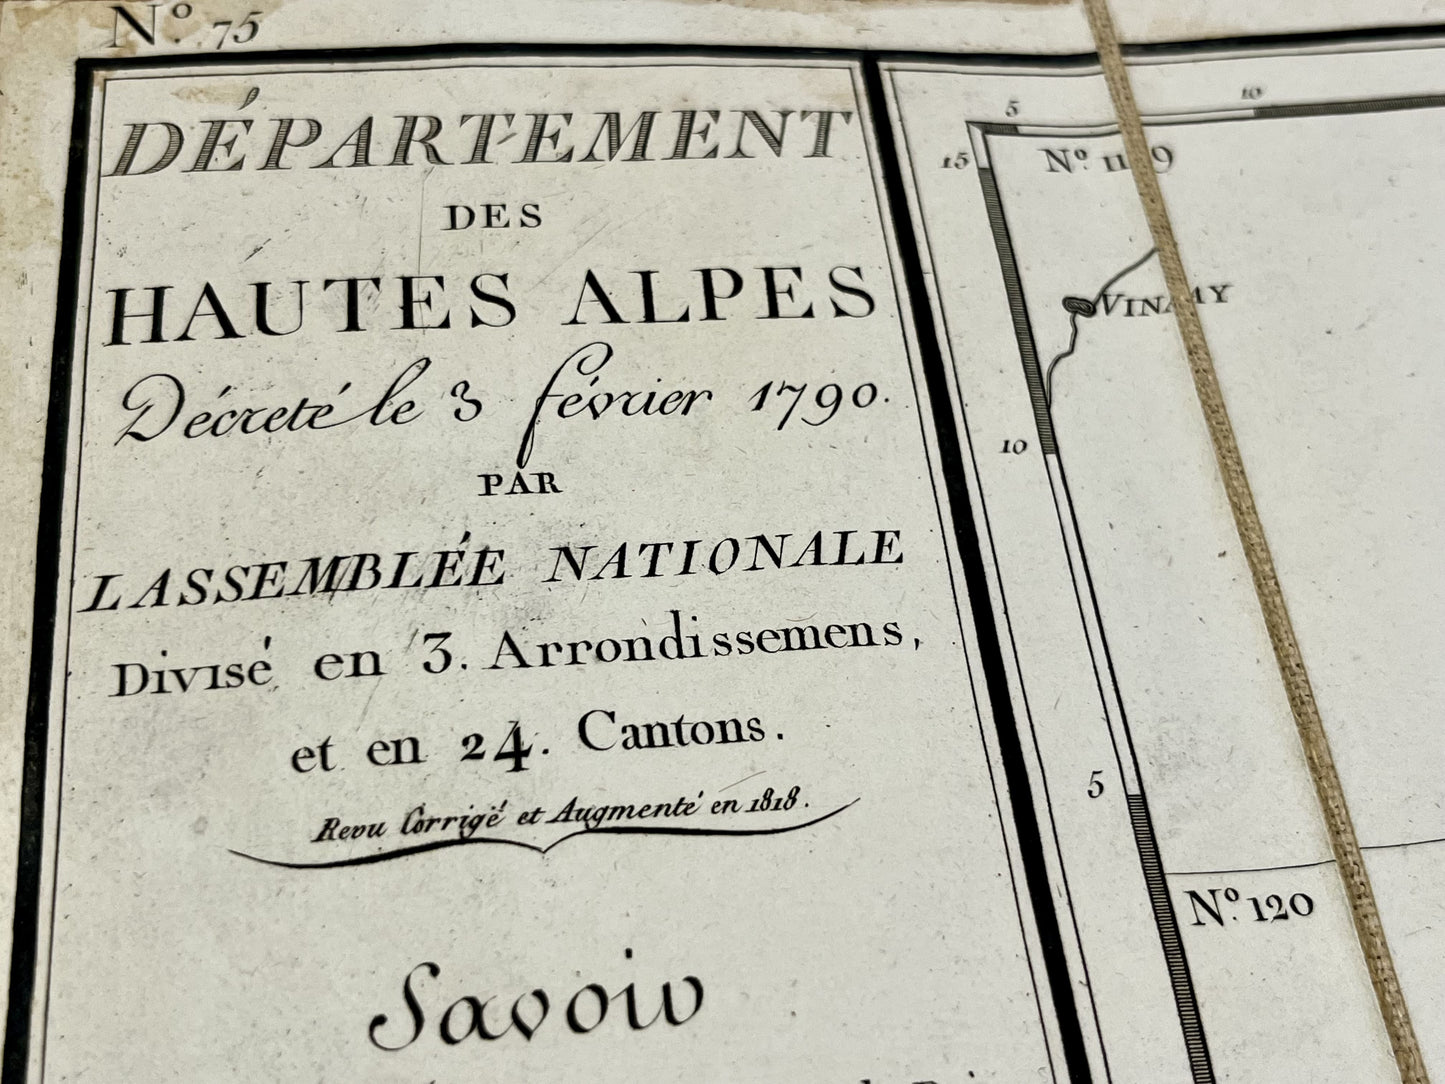 N.º 75
DÉPARTEMENT
DES
HAUTES ALPES
Décreté le 3 février 1790.
PAR
LASSEMBLÉE NATIONALE
Divisé en 3. Arrondissemens,
et en 24. Cantons.
Revu Corrigé et Augmenté en 1818.
Savoir
5
10
15
N.º 119
VINAY
10
5
N.º 120